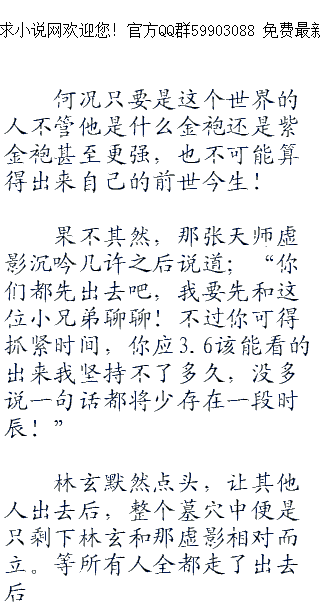 求小说网欢迎您! 官方QQ群59903088 免费最新
何况只要是这个世界的
人不管他是什么金袍还是紫
金袍甚至更强，也不可能算
得出来自己的前世今生！
果不其然，那张天师虚
影沉吟几许之后说道；“你
们都先出去吧，我要先和这
位小兄弟聊聊！不过你可得
抓紧时间，你应3.6该能看的
出来我坚持不了多久，没多
说一句话都将少存在一段时
辰！”
林玄默然点头，让其他
人出去后，整个墓穴中便是
只剩下林玄和那虚影相对而
立。等所有人全都走了出去
后